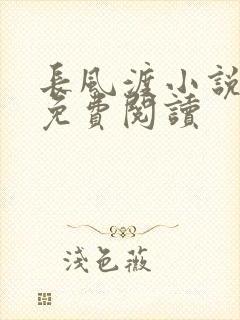 長風渡小說
免費閱讀
淺色薇